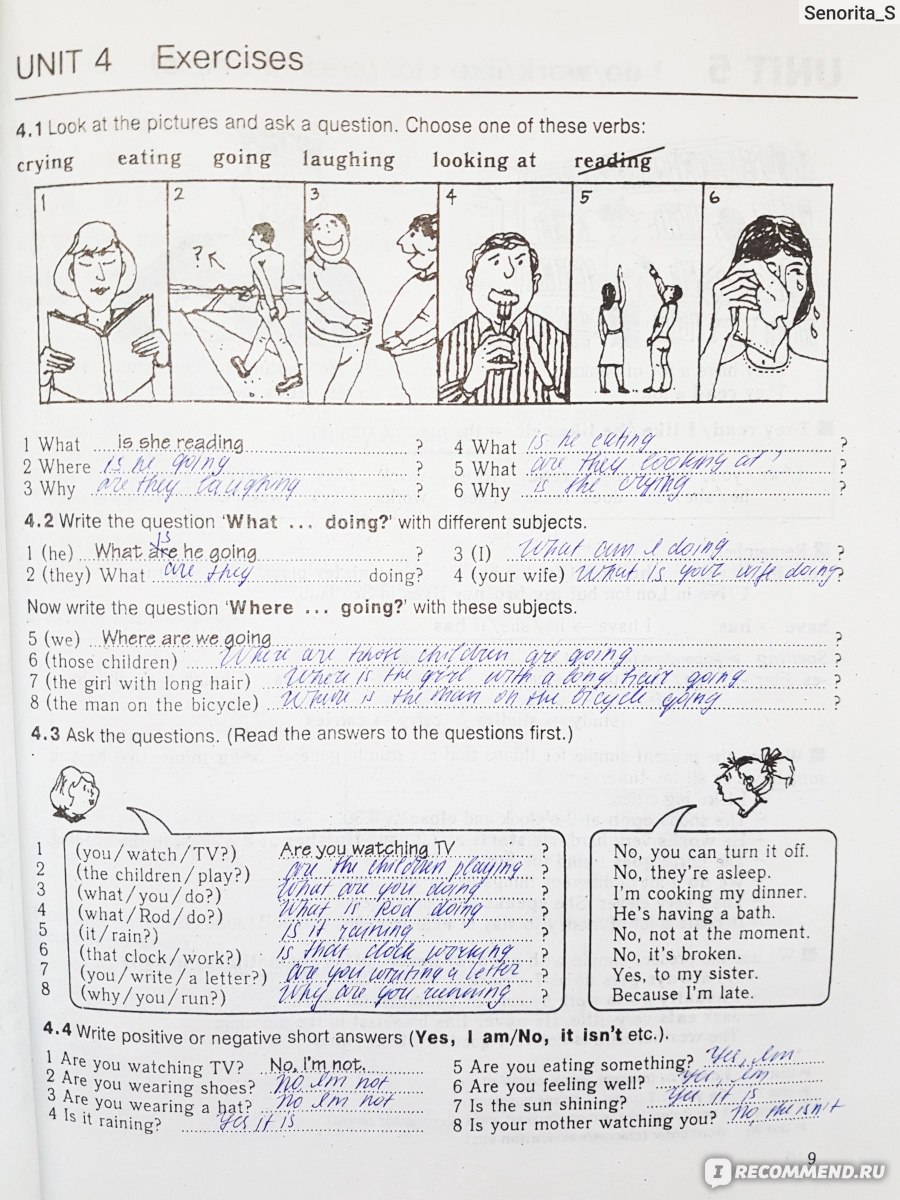 Senorita_S
UNIT 4 Exercises
4.1 Look at the pictures and ask a question. Choose one of these verbs:
crying eating going laughing looking at reading
1 2 3 4 5 6
?
1 What is she reading ?
2 Where is he going ?
3 Why are they laughing ?
4 What is he eating ?
5 What are they looking at? ?
6 Why is she crying ?
4.2 Write the question 'What ... doing?' with different subjects.
is
1 (he) What are he going ?
2 (they) What are they doing?
3 (I) What am I doing ?
4 (your wife) What is your wife doing ?
Now write the question 'Where ... going?' with these subjects.
5 (we) Where are we going ?
6 (those children) Where are those children are going ?
7 (the girl with long hair) Where is the girl with a long hair going ?
8 (the man on the bicycle) Where is the man on the bicycle going ?
4.3 Ask the questions. (Read the answers to the questions first.)
1 (you/watch/TV?) Are you watching TV ? No, you can turn it off.
2 (the children/play?) are the children playing ? No, they're asleep.
3 (what/you/do?) What are you doing ? I'm cooking my dinner.
4 (what/Rod/do?) What is Rod doing ? He's having a bath.
5 (it/rain?) Is it raining ? No, not at the moment.
6 (that clock/work?) is that clock working ? No, it's broken.
7 (you/write/a letter?) are you writing a letter ? Yes, to my sister.
8 (why/you/run?) Why are you running ? Because I'm late.
4.4 Write positive or negative short answers (Yes, I am/No, it isn't etc.).
1 Are you watching TV? No, I'm not.
2 Are you wearing shoes? no Im not
3 Are you wearing a hat? no Im not
4 Is it raining? Yes it is
5 Are you eating something? Yes, Im
6 Are you feeling well? Yes, Im
7 Is the sun shining? Yes it is
8 Is your mother watching you? No, she isn't
9
IRECOMMEND.RU